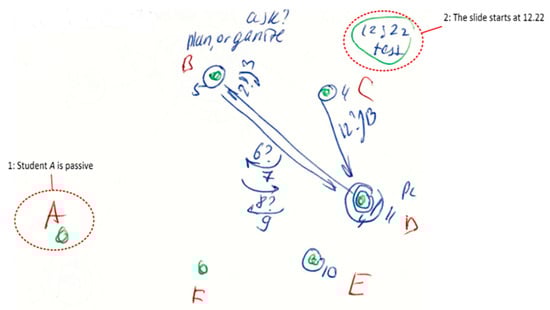 ask?
plan, organise
2: The slide starts at 12.22
12,22
B
5
2?
3
4
C
12?
13
1: Student A is passive
6?
7
8?
9
PC
11
D
A
10
E
F